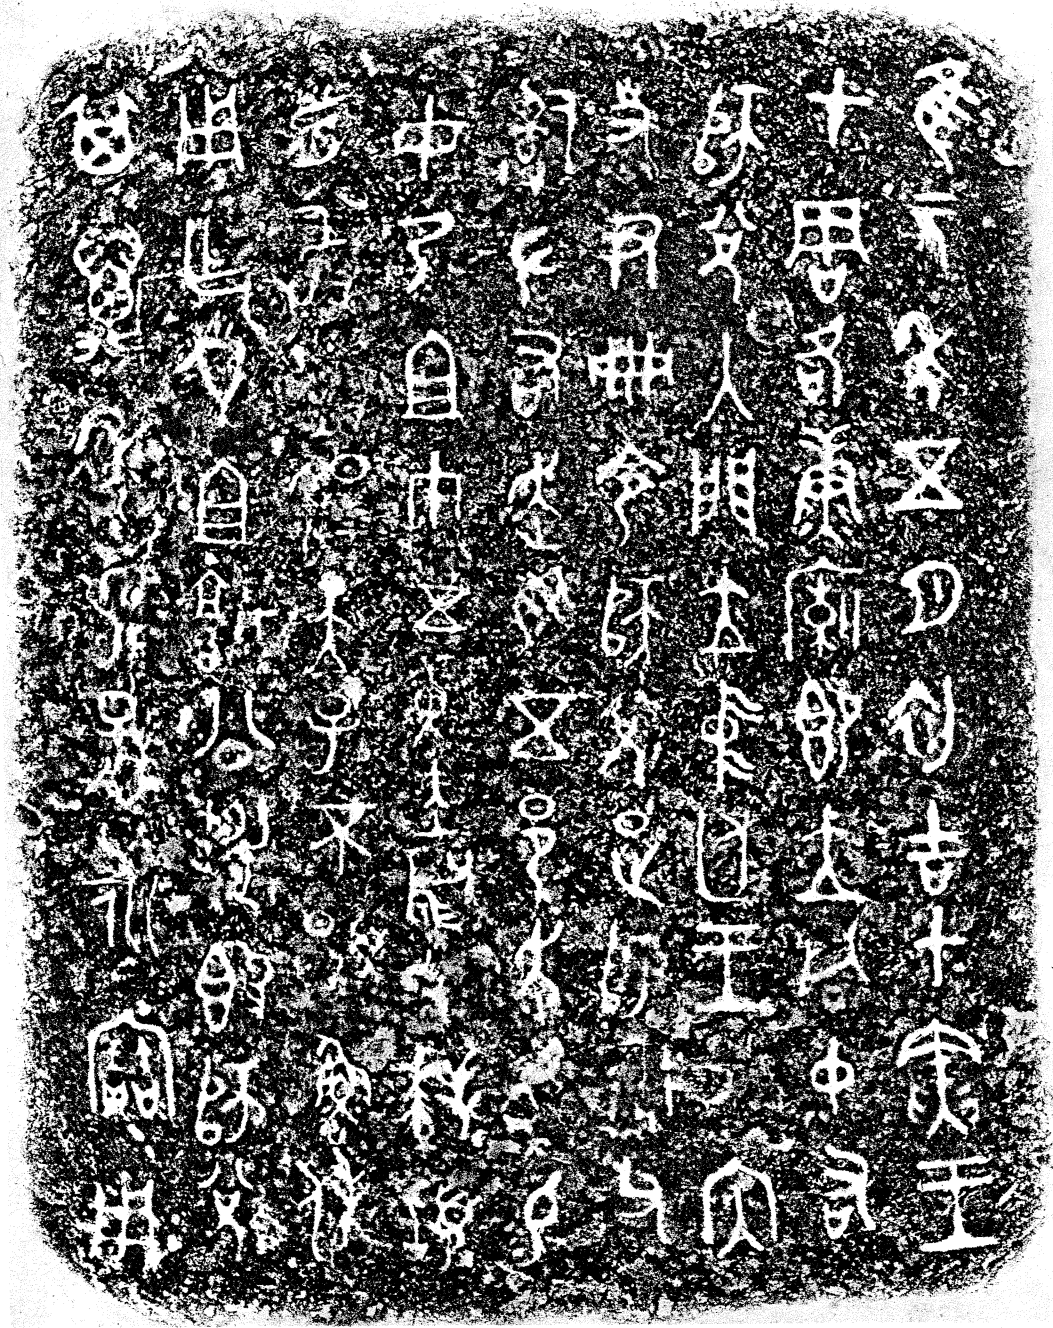 隹元年五月初吉甲寅王
才周各康廟即立同中右
師兌入門立中廷王乎內
史尹冊令師兌疋師龢父
𤔲左右走馬五邑走馬易
女乃且巾五黃赤舄兌拜𩒨
首敢對揚天子不顯魯休
用乍皇且城公䵼簋師兌
其萬年子子孫孫永寶用